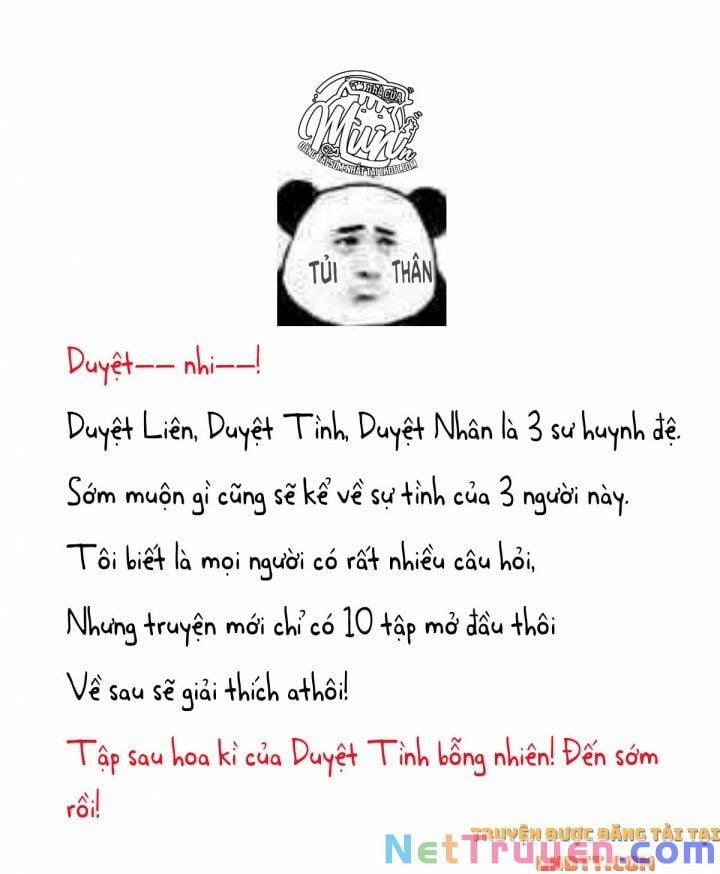 NHÀ CỦA
Mun
ĐĂNG TẢI SỚM NHẤT TẠI LHOTT.COM
TỦI THÂN
Duyệt—— nhi——!
Duyệt Liên, Duyệt Tình, Duyệt Nhân là 3 sư huynh đệ.
Sớm muộn gì cũng sẽ kể về sự tình của 3 người này.
Tôi biết là mọi người có rất nhiều câu hỏi,
Nhưng truyện mới chỉ có 10 tập mở đầu thôi
Về sau sẽ giải thích athôi!
Tập sau hoa kì của Duyệt Tình bỗng nhiên! Đến sớm
rồi!
TRUYỆN ĐƯỢC ĐĂNG TẢI TẠI
NetTruyen.com